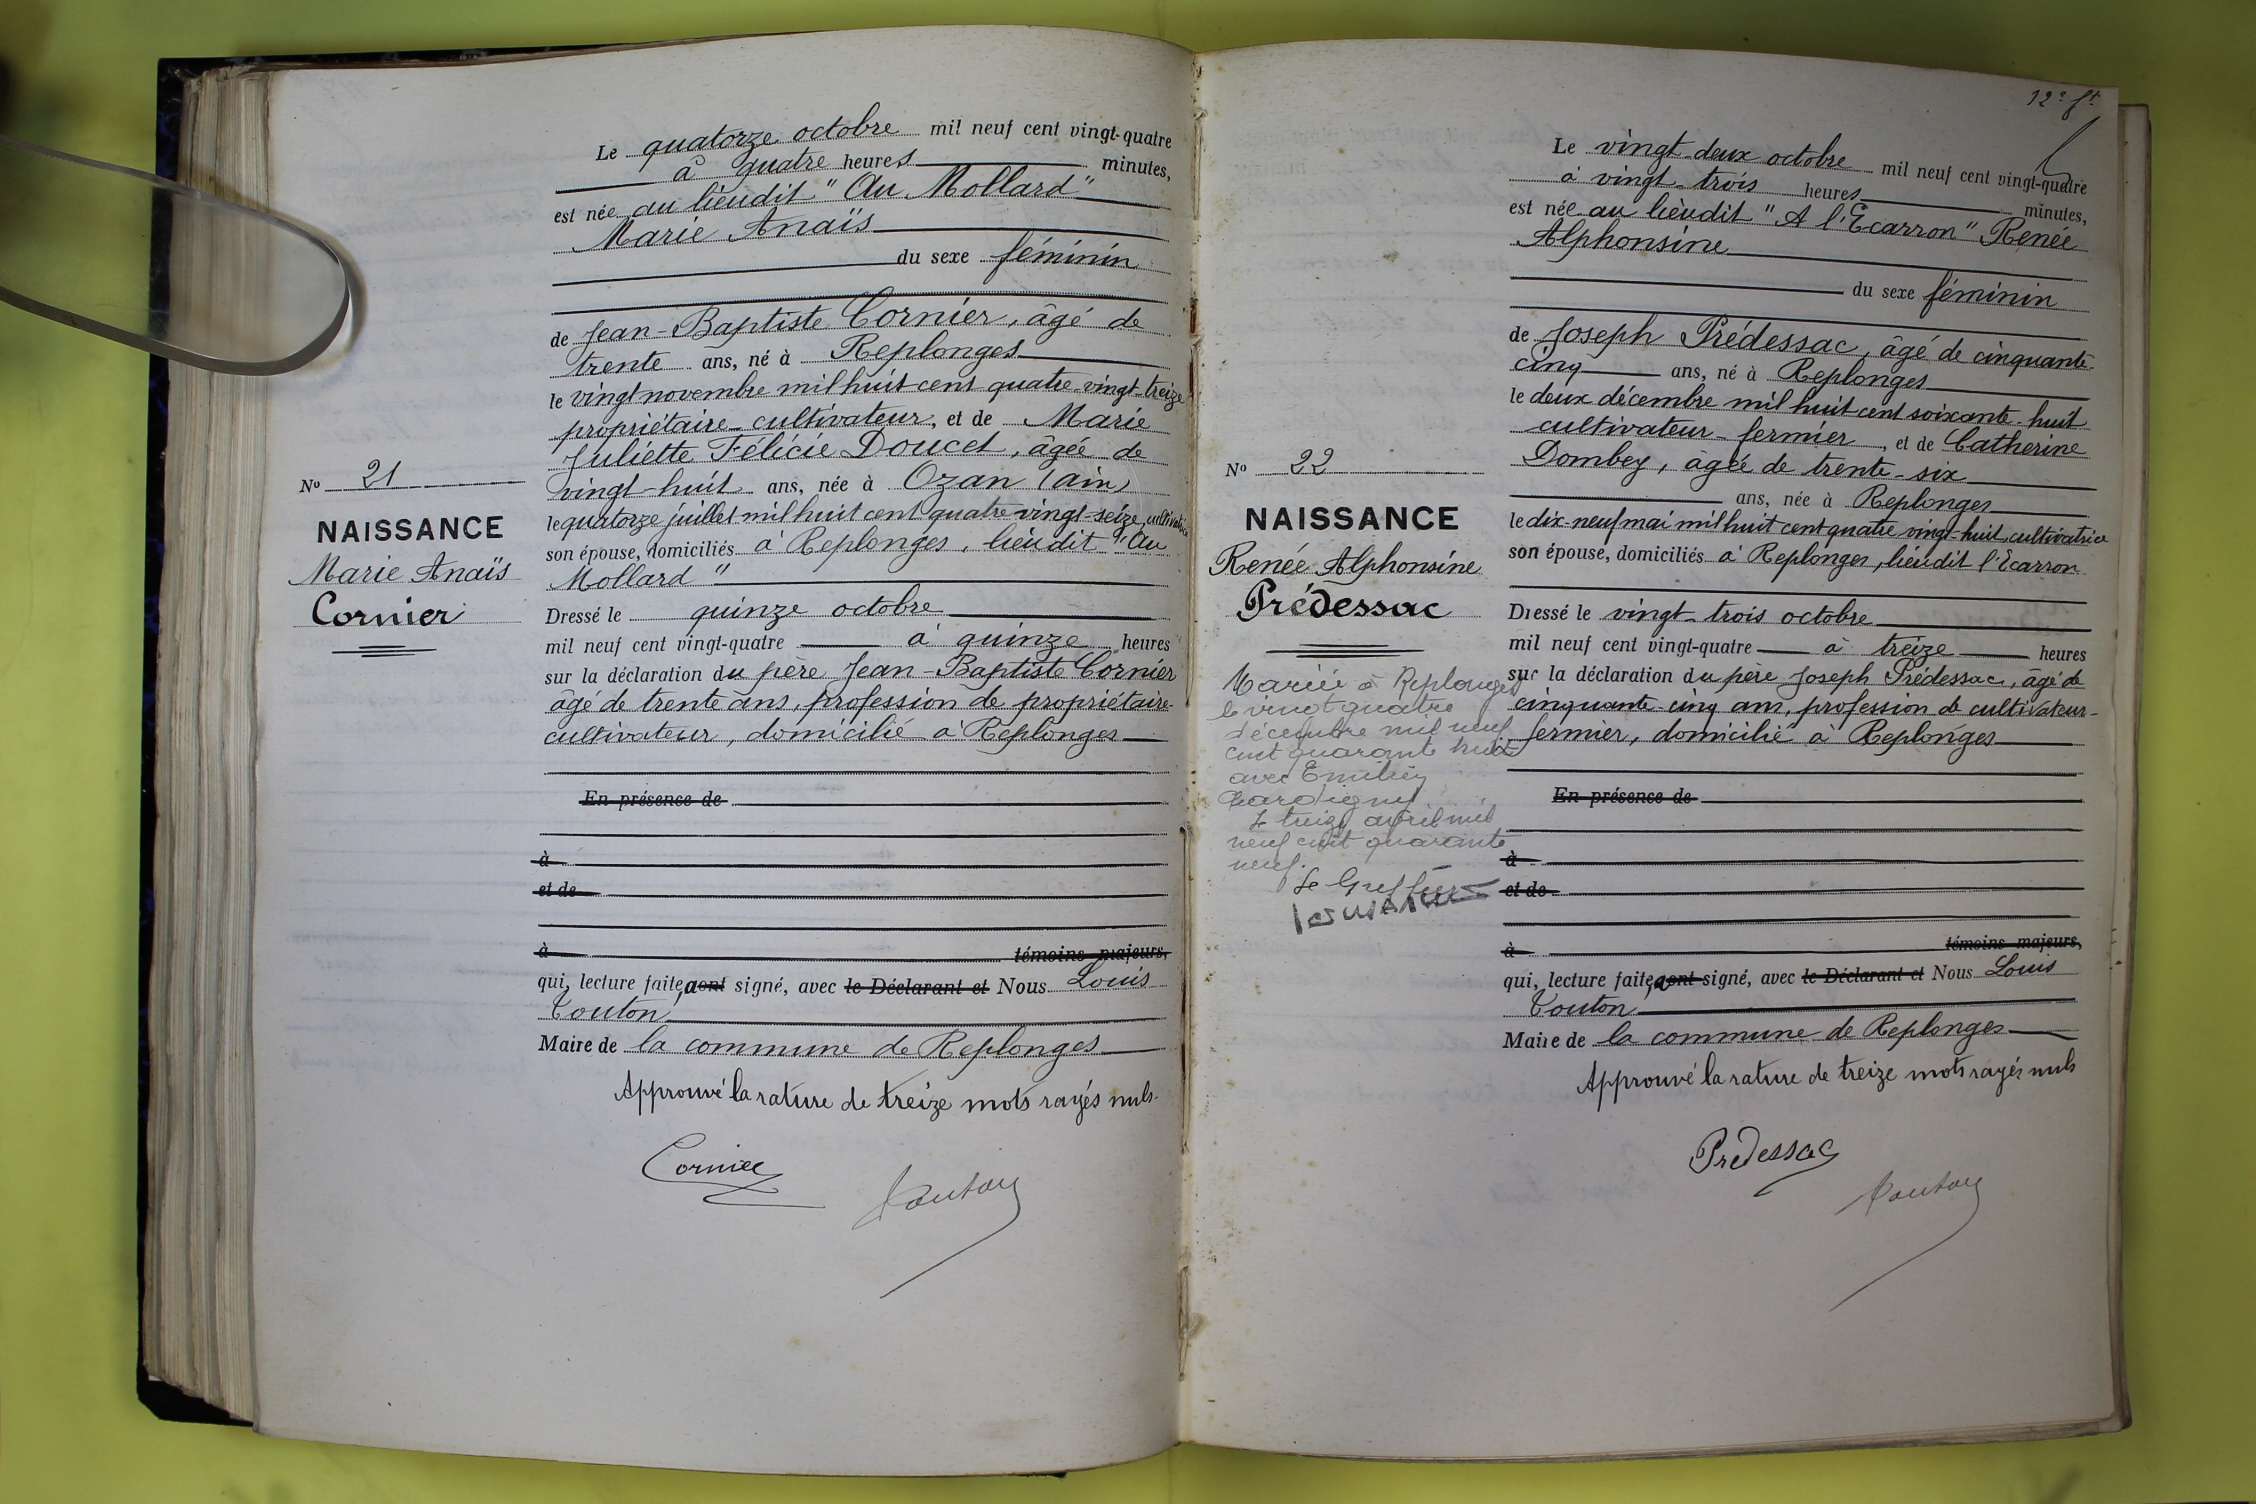 Le quatorze octobre mil neuf cent vingt-quatre
à quatre heures minutes,
est née au lieudit "Au Mollard"
Marie Anaïs
du sexe féminin
de Jean-Baptiste Cornier, âgé de
trente ans, né à Replonges
le vingt novembre mil huit cent quatre-vingt-treize
propriétaire-cultivateur, et de Marie
Juliette Félicie Doucet, âgée de
vingt-huit ans, née à Ozan (Ain)
le quatorze juillet mil huit cent quatre-vingt-seize, cultivatrice
son épouse, domiciliés à Replonges, lieudit "Au
Mollard"
Dressé le quinze octobre
mil neuf cent vingt-quatre à quinze heures
sur la déclaration du père Jean-Baptiste Cornier
âgé de trente ans, profession de propriétaire-
cultivateur, domicilié à Replonges
En présence de
à
et de
à témoins majeurs,
qui, lecture faite, a ont signé, avec le Déclarant et Nous Louis
Touton,
Maire de la commune de Replonges
Approuvé la rature de treize mots rayés nuls.
Cornier
Touton
No 21
NAISSANCE
Marie Anaïs
Cornier
12e ft
Le vingt-deux octobre mil neuf cent vingt-quatre
à vingt-trois heures minutes,
est née au lieudit "A l'Ecarron" Renée
Alphonsine
du sexe féminin
de Joseph Prédessac, âgé de cinquante-
cinq ans, né à Replonges
le deux décembre mil huit cent soixante-huit
cultivateur-fermier, et de Catherine
Dombey, âgée de trente-six
ans, née à Replonges
le dix-neuf mai mil huit cent quatre-vingt-huit, cultivatrice
son épouse, domiciliés à Replonges, lieudit l'Ecarron
Dressé le vingt-trois octobre
mil neuf cent vingt-quatre à treize heures
sur la déclaration du père Joseph Prédessac, âgé de
cinquante-cinq ans, profession de cultivateur-
fermier, domicilié à Replonges
En présence de
à
et de
à témoins majeurs,
qui, lecture faite, a ont signé, avec le Déclarant et Nous Louis
Touton
Maire de la commune de Replonges
Approuvé la rature de treize mots rayés nuls
Prédessac
Touton
No 22
NAISSANCE
Renée Alphonsine
Prédessac
Mariée à Replonges
le vingt quatre
décembre mil neuf
cent quarante huit
avec Emilien
treize avril mil
neuf cent quarante
neuf.
Le Greffier